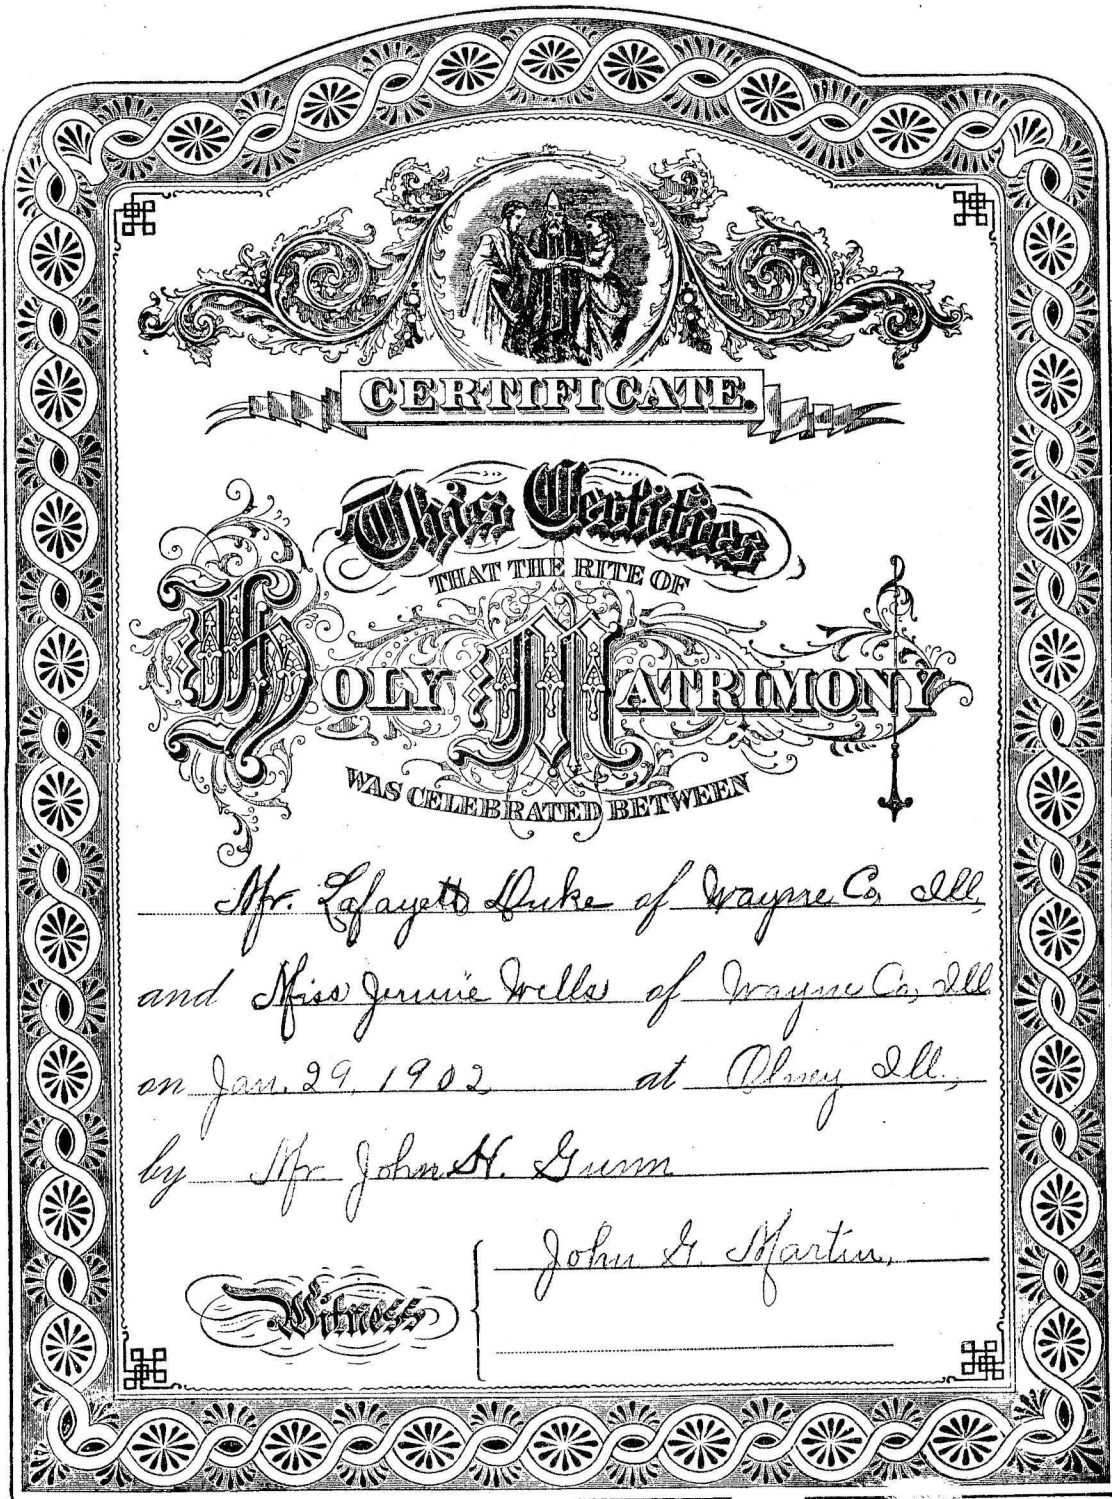 CERTIFICATE.
This Certifies
THAT THE RITE OF
HOLY MATRIMONY
WAS CELEBRATED BETWEEN
Mr. Lafayett Duke of Wayne Co, Ill,
and Miss Jennie Wells of Wayne Co, Ill
on Jan. 29, 1902 at Olney Ill.,
by Mr John H. Gunn
John G. Martin,
Witness